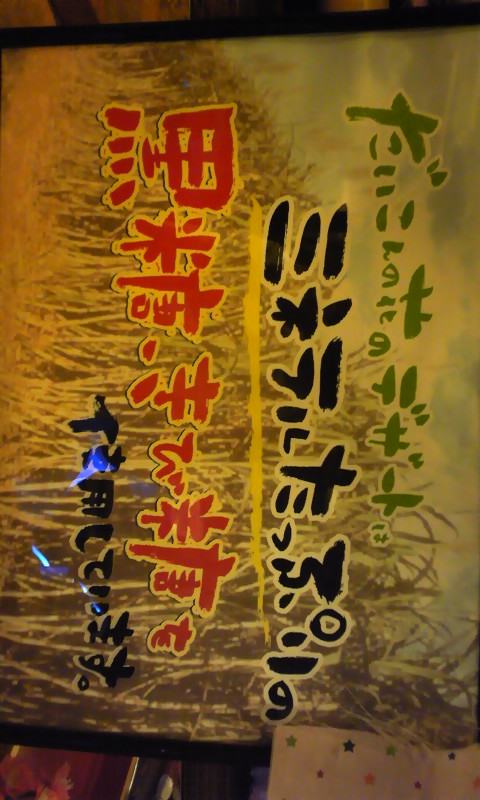 だいこんの花のデザートは
ミネラルたっぷりの
黒糖、きび糖を
使用しています。